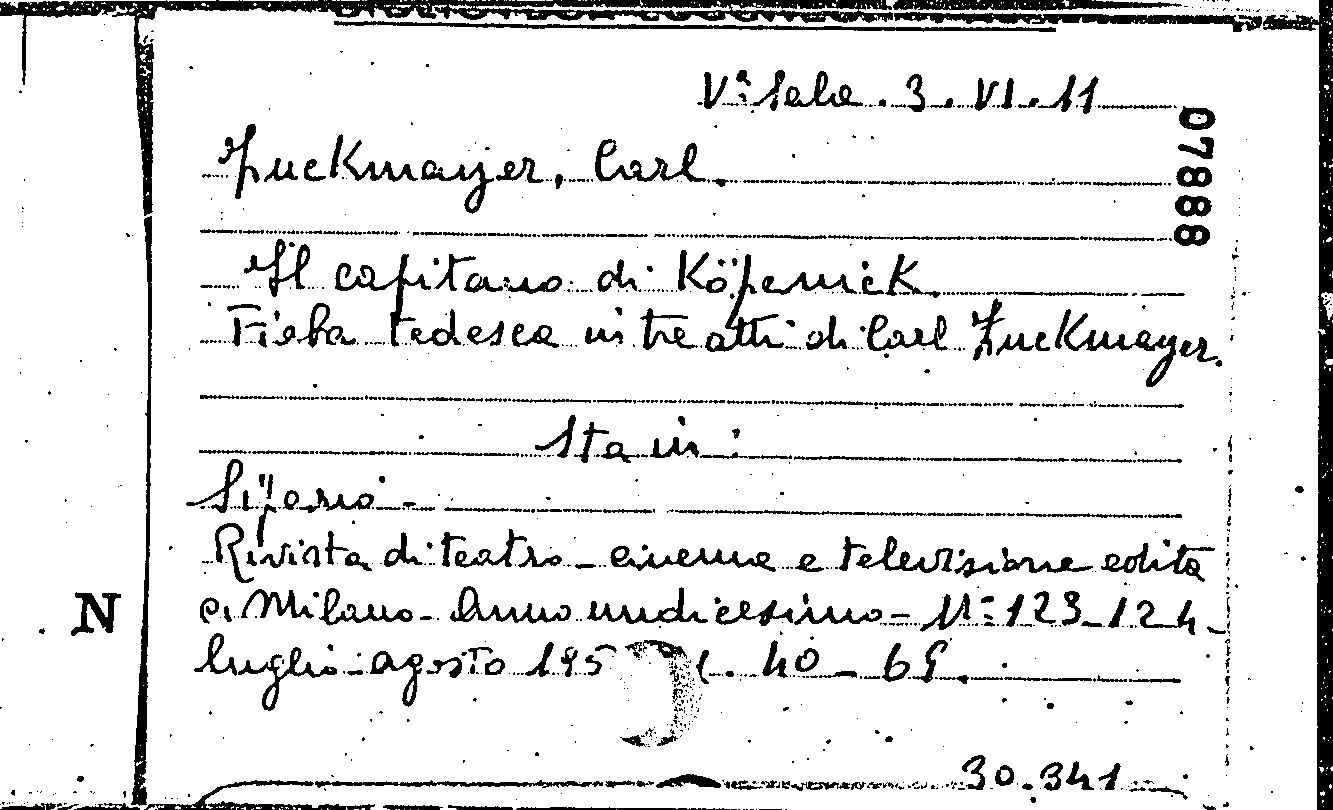 Vª Sala. 3. VI. 11
07888
Zuckmayer, Carl.
Il capitano di Köpenick.
Fiaba tedesca in tre atti di Carl Zuckmayer.
Sta in:
Sipario -
Rivista di teatro - cinema e televisione edita
N
a Milano - Anno undicesimo - Nº: 123-124 -
luglio-agosto 195 . 40 - 69.
30.341